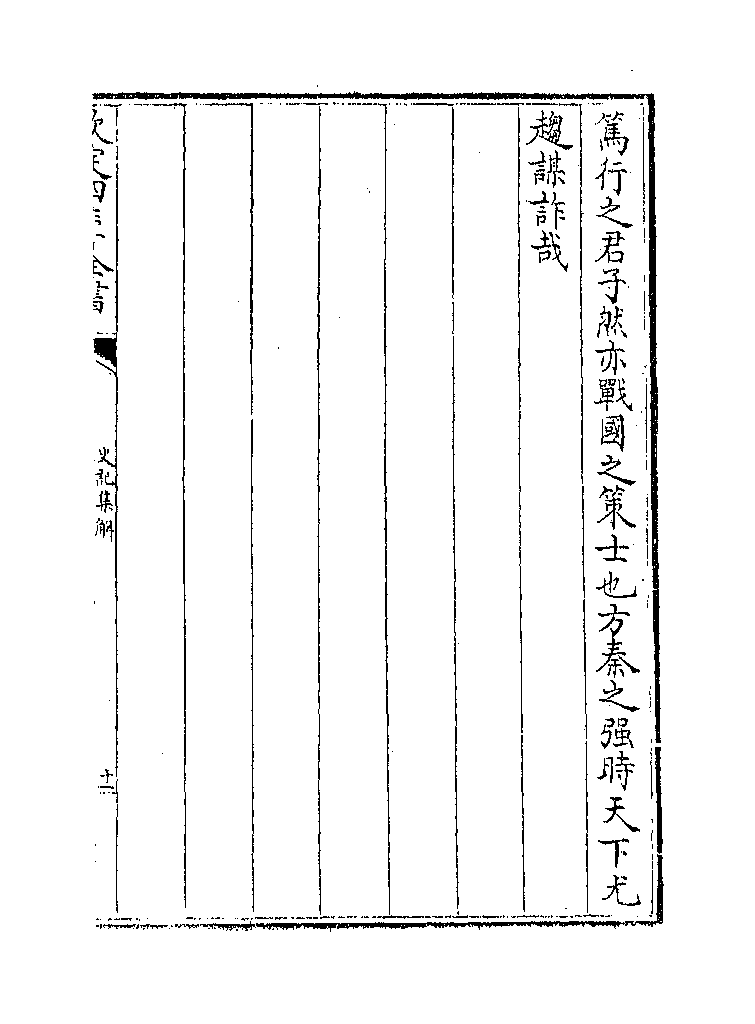 篤行之君子然亦戰國之策士也方秦之强時天下尤
趨謀詐哉
欽定四庫全書
史記集解
十一